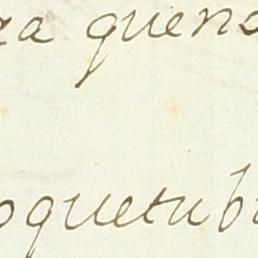 za queno
oquetubi